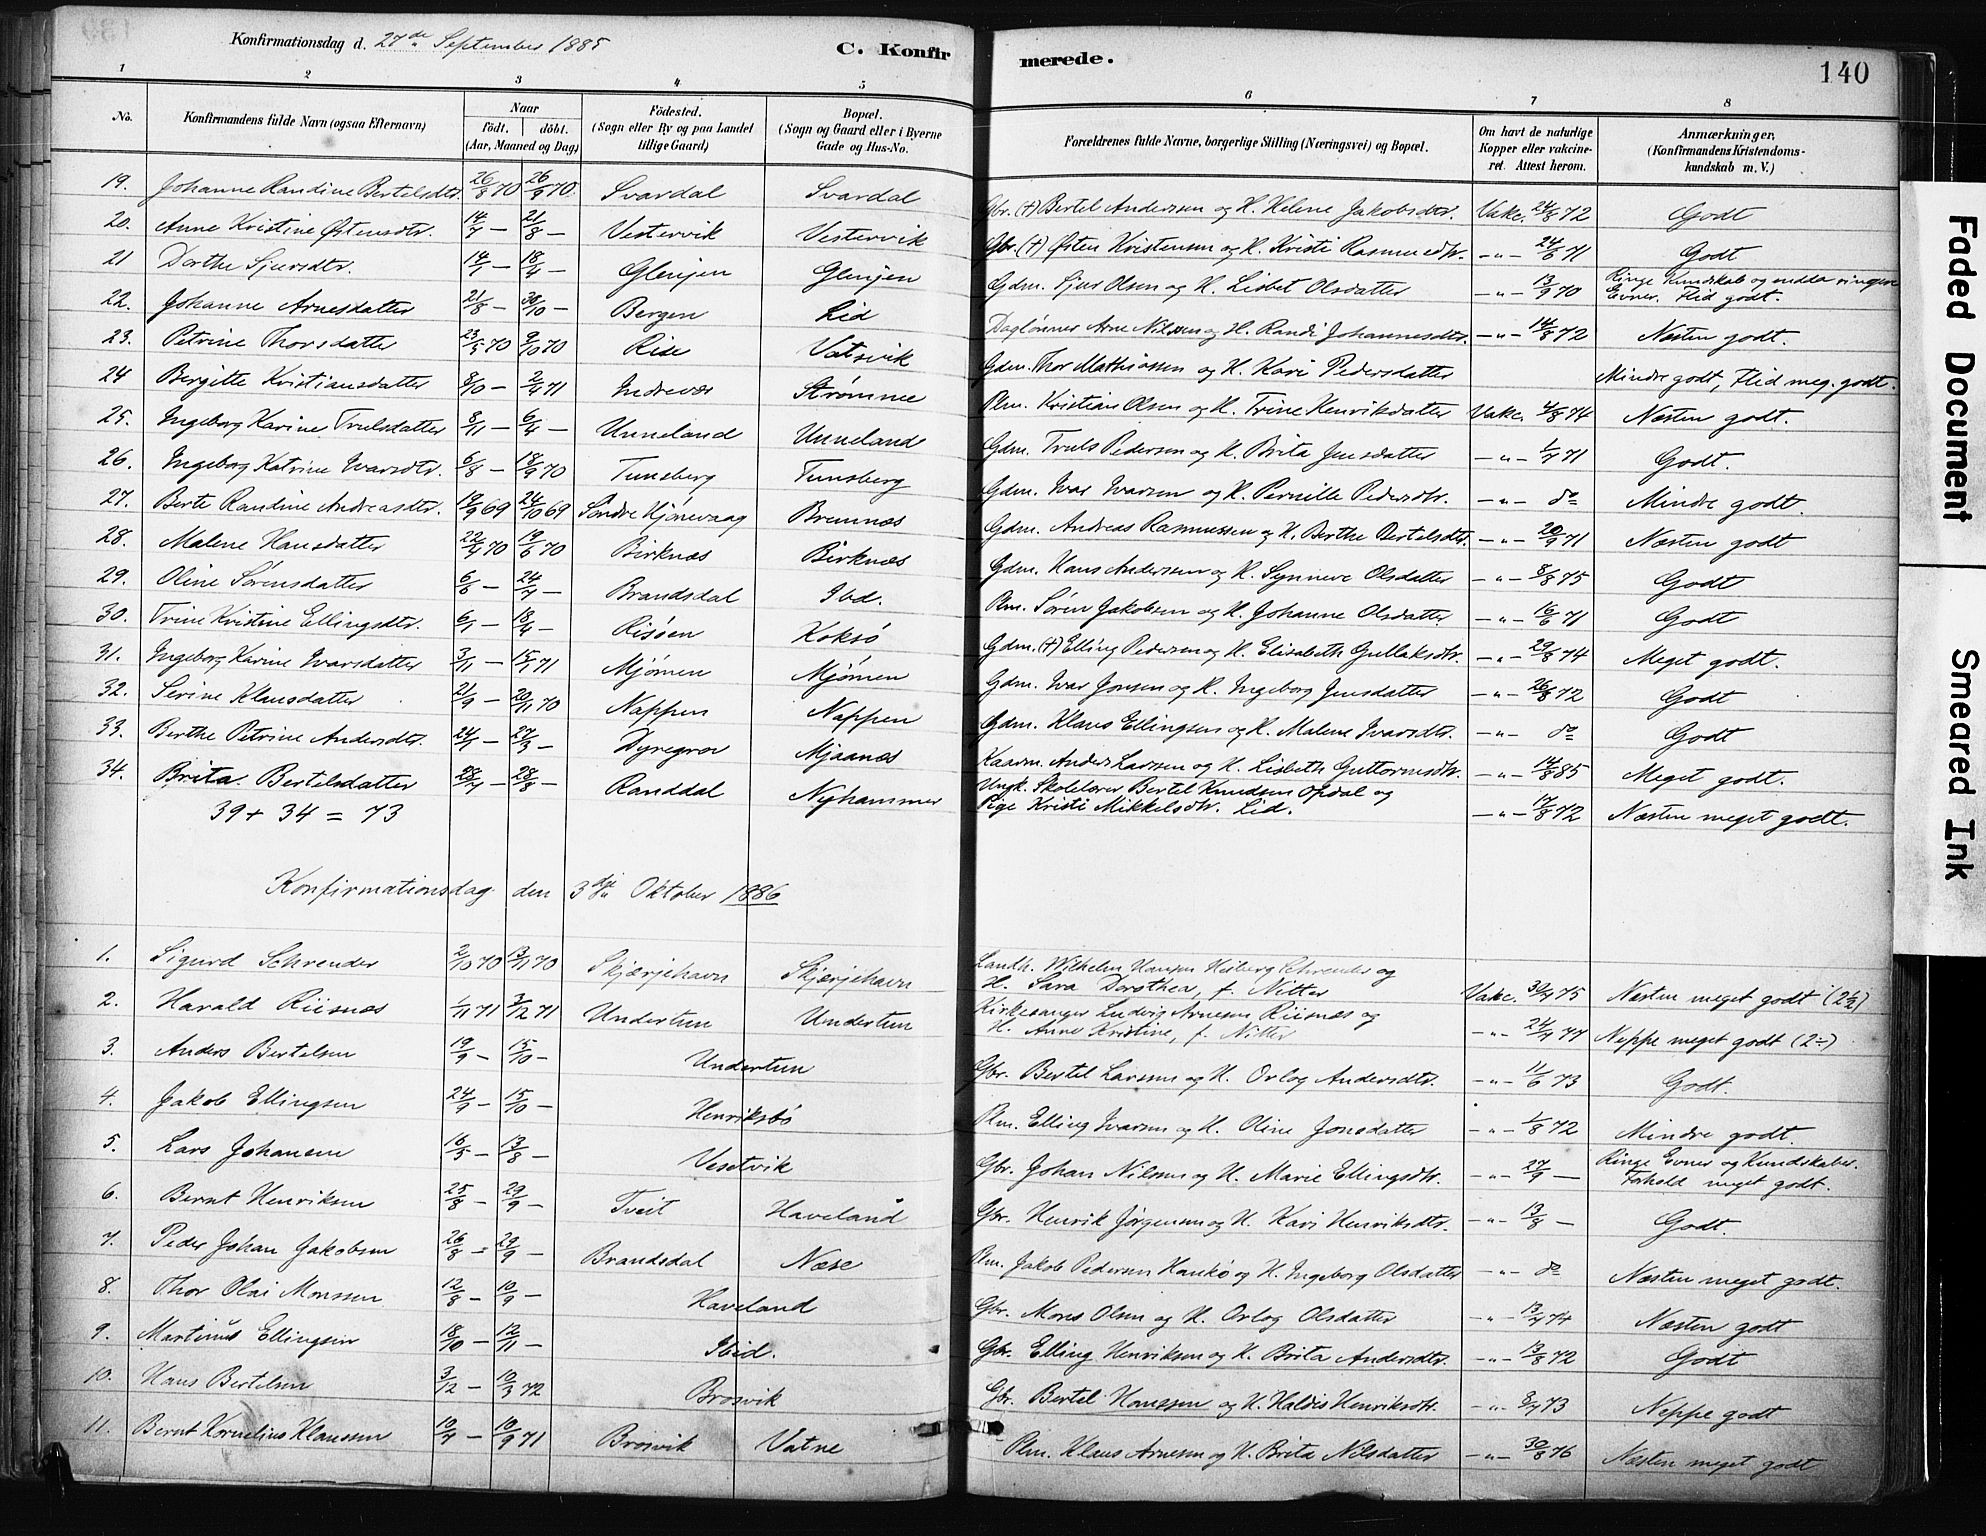 Konfirmationsdag d. 27de September 1885
C. Konfirmerede.
140
1 2 3 4 5 6 7 8
No. | Konfirmandens fulde Navn (ogsaa Efternavn) | Naar födt. döbt. (Aar, Maaned og Dag) | Födested. (Sogn eller By og paa Landet tillige Gaard) | Bopæl. (Sogn og Gaard eller i Byerne Gade og Hus-No. | Forældrenes fulde Navne, borgerlige Stilling (Næringsvei) og Bopæl. | Om havt de naturlige Kopper eller vakcineret. Attest herom. | Anmærkninger, (Konfirmandens Kristendomskundskab m. V.)
19. Johanne Randine Bertelsdtr. 26/8 70 26/9 70 Svardal Svardal Gbr. (+) Bertel Anderssen og H. Helene Jakobsdtr. Vakc. 24/8 72 Godt
20. Anne Kristine Østensdtr. 14/7 — 21/8 — Vestervik Vestervik Gbr. (+) Østen Kristensen og H. Kristi Rasmusdtr. —"— 24/6 71 Godt
21 Dorthe Sjursdtr. 14/1 — 18/4 — Glenjen Glenjen Gdm. Sjur Olsen og H. Lisbet Olsdatter —"— 13/9 70 Ringe Kundskab og endda ringere Evner. Flid godt.
22. Johanne Arnesdatter 21/8 — 30/10 — Bergen Lid Daglønner Arne Nilssen og H. Randi Johannesdtr. —"— 14/8 72 Næsten godt.
23. Petrine Thorsdatter 23/5 70 9/10 70 Rise Vatsvik Gdm. Thor Mathiassen og H. Kari Pedersdatter Mindre godt, Flid meg. godt.
24 Bergitte Kristiansdatter 8/10 — 2/4 71 Indrevær Strømme Plm. Kristian Olsen og H. Trine Henriksdatter Vakc. 4/8 74 Næsten godt.
25. Ingeborg Karine Trulsdatter 8/11 — 6/4 — Unneland Unneland Gdm. Truls Pedersen og H. Brita Jensdatter —"— 1/7 71 Godt.
26. Ingeborg Katrine Ivarsdtr. 6/8 — 18/9 70 Tunsberg Tunsberg Gdm. Ivar Ivarsen og H. Pernille Pedersdtr. —"— do Mindre godt.
27. Berte Randine Andreasdtr. 19/9 69 24/10 69 Søndre Hjønevaag Bremnes Gdm. Andreas Rasmussen og H. Berthe Bertelsdtr. —"— 20/9 71 Næsten godt
28. Malene Hansdatter 22/4 70 19/6 70 Birknæs Birknæs Gdm. Hans Anderssen og H. Synneve Olsdatter —"— 8/8 75 Godt
29. Oline Sørensdatter 6/6 — 24/7 — Brandsdal Ibd. Plm. Søren Jakobsen og H. Johanne Olsdatter —"— 16/6 71 Godt
30. Trine Kristine Ellingsdtr. 6/1 — 18/4 — Risøen Koksø Gdm. (+) Elling Pedersen og H. Elisabeth Gullaksdtr. —"— 29/8 74 Meget godt.
31. Ingeborg Karine Ivarsdatter 3/11 — 15/1 71 Mjømen Mjømen Gdm. Ivar Jonsen og H. Ingeborg Jensdatter —"— 26/8 72 Godt
32. Serine Klausdatter 21/9 — 20/11 70 Nappen Nappen Gdm. Klaus Ellingsen og H. Malene Ivarsdtr. —"— do Godt
33. Berthe Petrine Andersdtr. 24/1 — 27/3 — Dyregrov Mjaanes Kaarm. Anders Larssen og H. Lisbeth Guttormsdtr. —"— 14/8 85 Meget godt.
34. Brita Bertelsdatter 28/7 — 28/8 — Randdal Nyhammer Ungk. Skolelærer Bertel Knudsen Opdal og
Pige Kristi Mikkelsdtr. Lid. —"— 17/8 72 Næsten meget godt.
39 + 34 = 73
Konfirmationsdag den 3die Oktober 1886
1. Sigurd Schreuder 2/10 70 13/11 70 Skjærjehavn Skjærjehavn Landh. Wilhelm Hansen Heiberg Schreuder og
H. Sara Dorothea, f. Nitter Vakc. 30/7 75 Næsten meget godt (2½)
2. Harald Riisnæs 1/11 71 3/12 71 Undertun Undertun Kirkesanger Ludvig Arnesen Riisnæs og
H. Anne Kristine, f. Nitter —"— 24/7 77 Neppe meget godt (2÷)
3. Anders Bertelsen 19/9 — 15/10 — Undertun Gbr. Bertel Larssen og H. Orlog Andersdtr. —"— 11/6 73 Godt.
4. Jakob Ellingsen 24/9 — 15/10 — Henriksbø Plm. Elling Ivarsen og H. Oline Jonsdatter —"— 1/8 72 Mindre godt.
5. Lars Johansen 16/5 — 13/8 — Vesetvik Gbr. Johan Nilssen og H. Marie Ellingsdtr. —"— 27/9 — Ringe Evner og Kundskaber. Forhold meget godt.
6. Bernt Henriksen 25/8 — 29/9 — Tveit Haveland Gbr. Henrik Jørgensen og H. Kari Henriksdtr. —"— 13/8 — Godt.
7. Peder Johan Jakobsen 26/8 — 29/9 — Brandsdal Næse Plm. Jakob Pedersen Haukø og H. Ingeborg Olsdatter —"— do Næsten meget godt.
8. Thor Olai Monssen 12/8 — 10/9 — Haveland Gbr. Mons Olsen og H. Orlog Olsdatter —"— 13/7 74 Næsten godt
9. Martinus Ellingsen 18/10 — 12/11 — Ibid. Gbr. Elling Henriksen og H. Brita Andersdtr. —"— 13/8 72 Godt
10. Hans Bertelsen 3/12 — 10/3 72 Brosvik Gbr. Bertel Hanssen og H. Haldis Henriksdtr. —"— 8/7 73 Neppe godt
11. Bernt Kornelius Klaussen 10/7 — 10/9 71 Brosvik Vatne Plm. Klaus Arnesen og H. Brita Nilsdatter —"— 30/8 76 Næsten meget godt
Faded Document
Smeared Ink